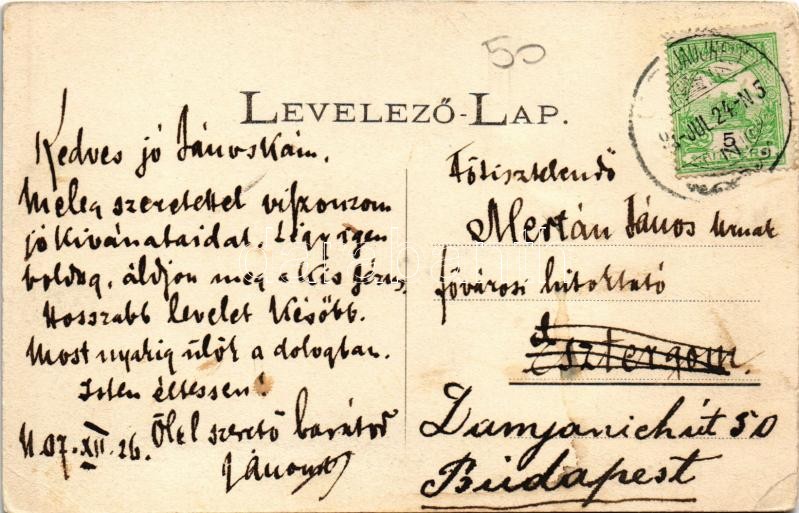 50
LEVELEZŐ-LAP.
Kedves jó Jánoskám.
Meleg szeretettel viszonzom
jókivánataidat. Légy igen
boldog, áldjon meg a kis Jézus,
Hosszabb levelet később.
Most nyakig ülök a dologban.
Isten éltessen!
07.XII.26. Ölel szerető barátod
János
Főtisztelendő
Mertán János Urnak
fővárosi hitoktató
Esztergom.
Damjanich út 50
Budapest
JUL 24-N 5
5